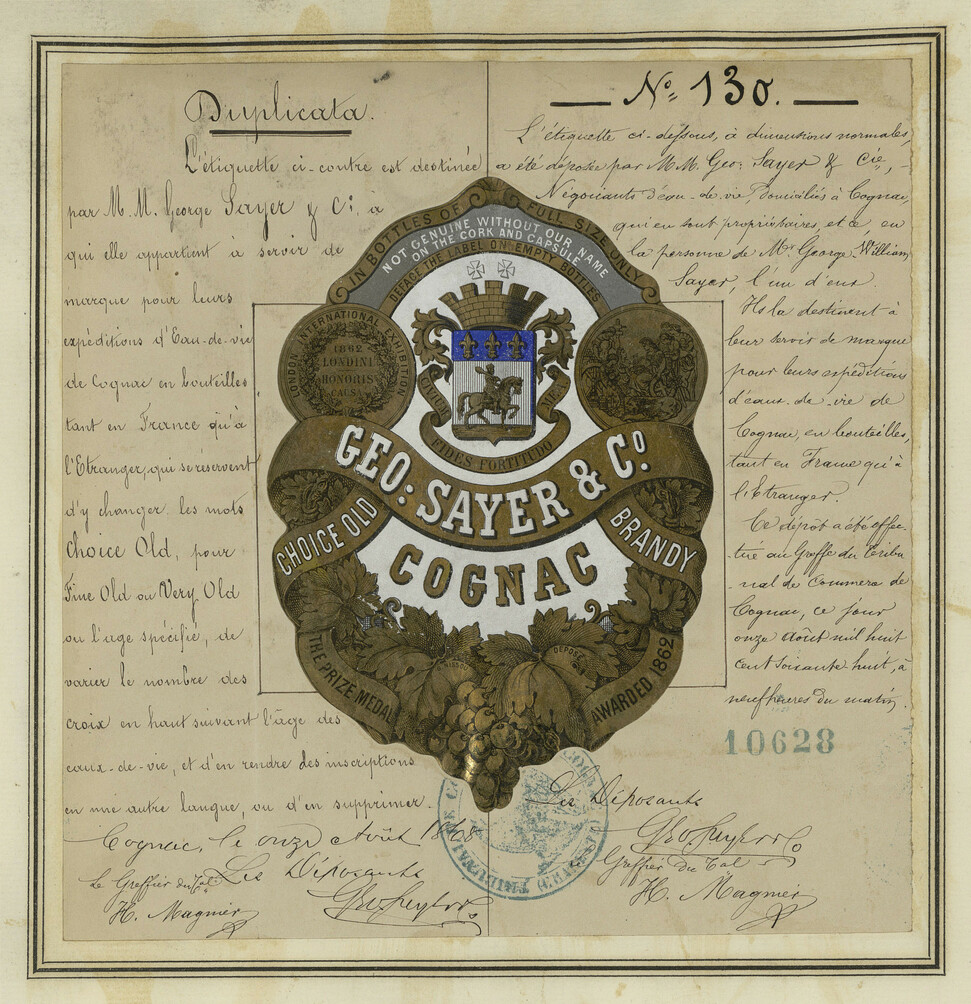 Duplicata.
L'étiquette ci-contre est destinée
par M. M. George Sayer & Cie, a
qui elle appartient à servir de
marque pour leurs
expéditions d'Eau-de-vie
de Cognac en bouteilles
tant en France qu'à
l'Etranger, qui se réservent
d'y changer les mots
Choice Old, pour
Fine Old ou Very Old
ou l'age spécifié, de
varier le nombre des
croix en haut suivant l'âge des
eaux-de-vie, et d'en rendre des inscriptions
en une autre langue, ou d'en supprimer.
Cognac, le onze Août 1868
Les Déposants
Geo Sayer & Co
Le Greffier du Tal
H. Magnier
No 130.
L'étiquette ci-dessous, à dimensions normales,
a été déposée par M.M. Geo: Sayer & Cie,
Négociants d'eau-de-vie, domiciliés à Cognac,
qui en sont propriétaires, et ce, en
la personne de Mr George William
Sayer, l'un d'eux.
Ils la destinent à
leur servir de marque
pour leurs expéditions
d'eaux-de-vie de
Cognac, en bouteilles,
tant en France qu'à
l'Etranger.
Ce dépôt a été effec-
tué au Greffe du Tribu
-nal de Commerce de
Cognac, ce jour
onze Août mil huit
cent soixante huit, à
neuf heures du matin.
10628
Les Déposants
Geo Sayer & Co
Greffier du Tal
H. Magnier
IN BOTTLES OF FULL SIZE ONLY
NOT GENUINE WITHOUT OUR NAME
ON THE CORK AND CAPSULE
DEFACE THE LABEL ON EMPTY BOTTLES
LONDON INTERNATIONAL EXHIBITION
1862
LONDINI
HONORIS
CAUSA
FIDES FORTITUDO
GEO: SAYER & Co.
CHOICE OLD BRANDY
COGNAC
THE PRIZE MEDAL
AWARDED 1862
DÉPOSÉ